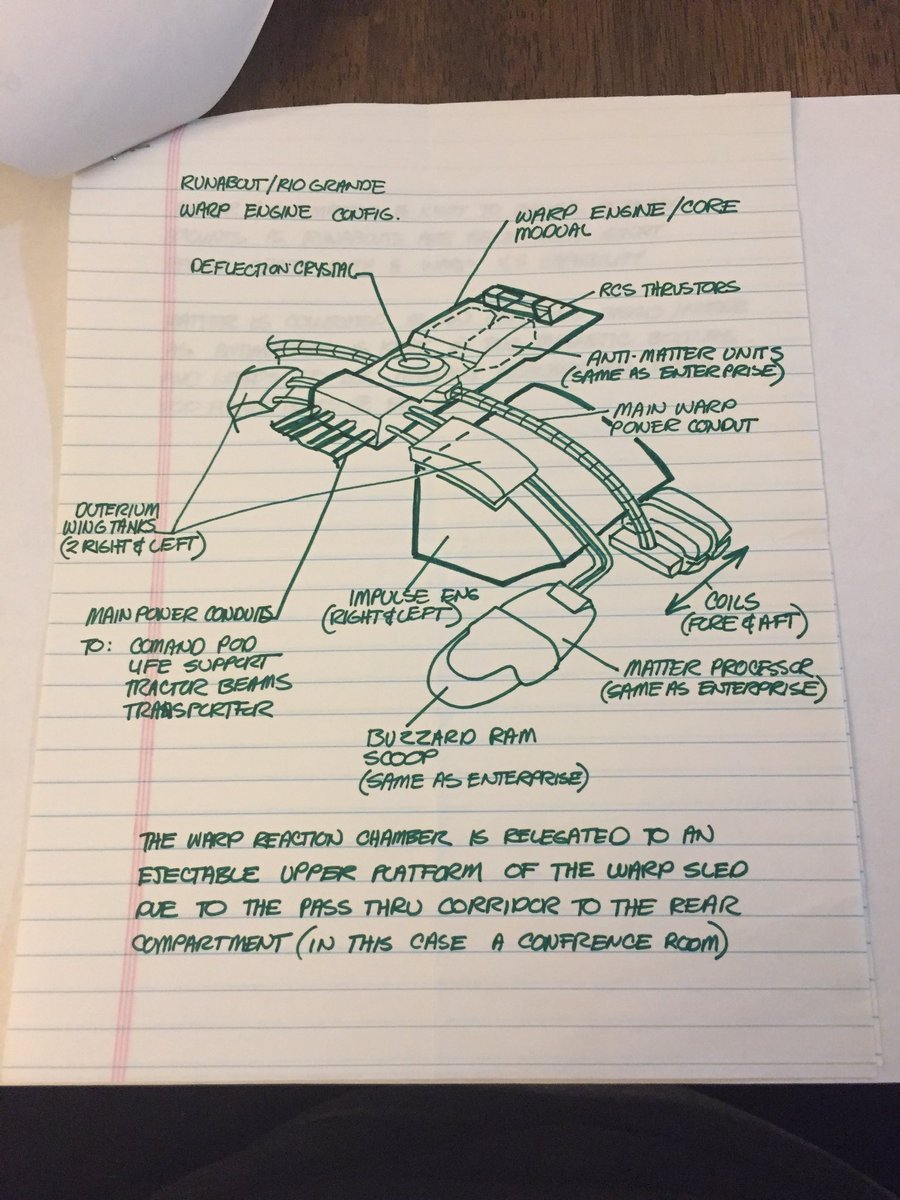 RUNABOUT/RIO GRANDE
WARP ENGINE CONFIG.
WARP ENGINE/CORE
MODUAL
DEFLECTION CRYSTAL
RCS THRUSTORS
ANTI-MATTER UNITS
(SAME AS ENTERPRISE)
MAIN WARP
POWER CONDUT
DUTERIUM
WING TANKS
(2 RIGHT & LEFT)
IMPULSE ENG
(RIGHT & LEFT)
COILS
(FORE & AFT)
MAIN POWER CONDUITS
TO: COMAND POD
LIFE SUPPORT
TRACTOR BEAMS
TRANSPORTER
MATTER PROCESSOR
(SAME AS ENTERPRISE)
BUZZARD RAM
SCOOP
(SAME AS ENTERPRISE)
THE WARP REACTION CHAMBER IS RELEGATED TO AN
EJECTABLE UPPER PLATFORM OF THE WARP SLED
DUE TO THE PASS THRU CORRIDOR TO THE REAR
COMPARTMENT (IN THIS CASE A CONFRENCE ROOM)